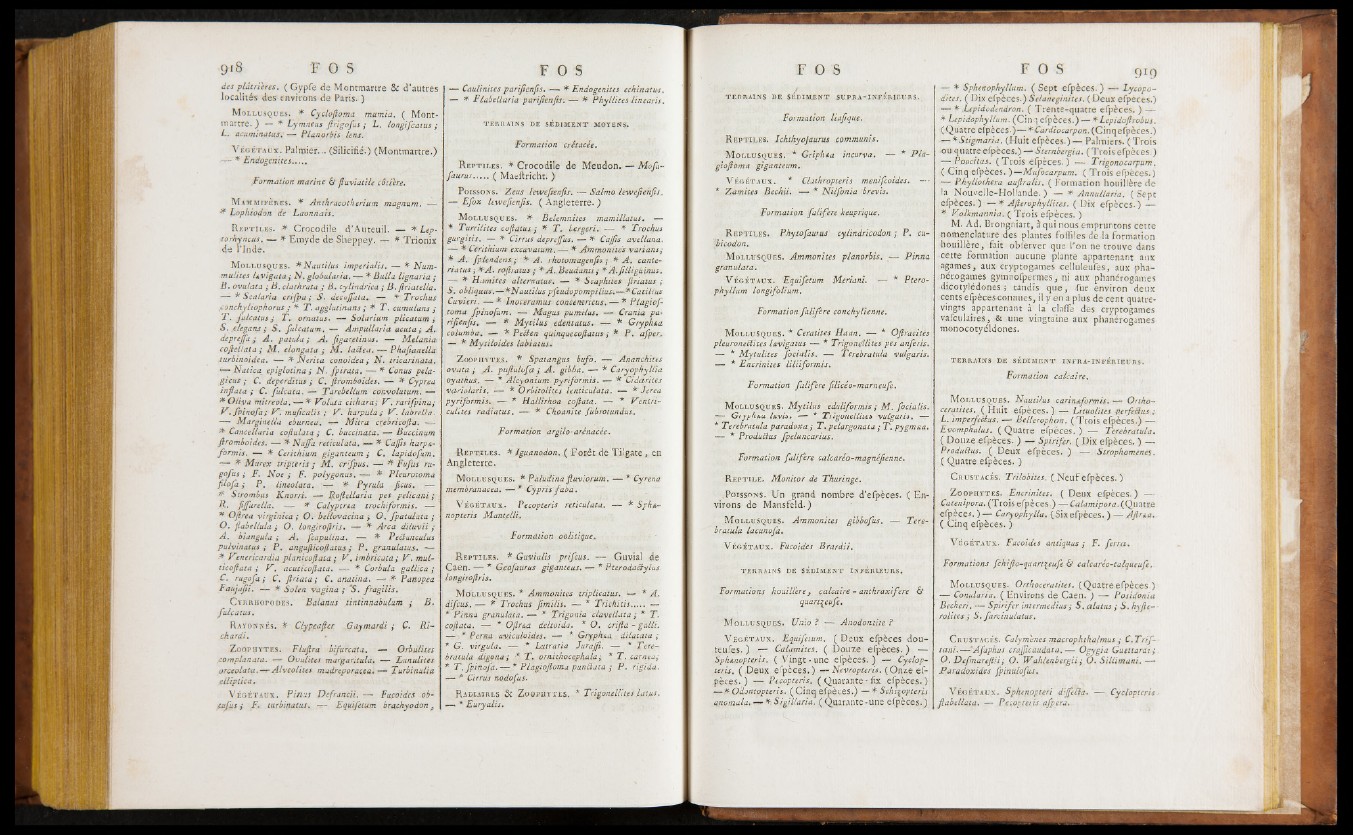 918 F O S
des plâtrières. ( Gypſe de Montmartre & d'autres
localités des environs de Paris. )
MOLLUSQUES. * Cycloſtoma mumia. ( Mont-
martre. ) — * Lymneus ſtrigoſus ; L. longiſcatus ;
L. acuminatus. — Planorbis lens.
VÉGÉTAUX. Palmier... (Silicifié.) (Montmartre.)
— * Endogenites.....
Formation marine & fluviatile tritière.
MAMMIFÈRES. * Anthracotherium magnum. —
* Lophiodon de Laonnais.
REPTILES. * Crocodile d'Auteuil. — * Lep-
torhyncus. — * Emyde de Sheppey. — * Trionix
de l'Inde.
MOLLUSQUES. * Nautilus imperialis. — * Num-
mulites lævigata ; N. globularia. — * Bulla lignaria ;
B. ovulata ; B. clathrata ; B. cylindrica ; B. ſtriatella.
— * Scalaria criſpa ; S. decuſſata. — * Trochus
conchyliophorus ; * T. agglutinans ; * T. cumulans ;
T. ſulcatus ; T. ornatus. — Solarium plicatum ;
S. elegans ; S. ſulcatum. — Ampullaria acuta ; A.
depreſſa ; A. patula ; A. ſigaretina. — Melania
coſtellata ; M. elongata ; M. lactea. — Phaſianella
turbinoidea. — * Nerita conoidea ; N. tricarinata.
— Natica epiglotina ; N. ſpirata. — * Conus pela-
gicus ; C. deperditus ; C. ſtromboides. — * Cyprea
inflata ; C. ſulcata. — Tarebellum convolutum. —
* Oliva mitreola. — * Voluta cithara ; V. rariſpina ;
V. ſpinoſa ; V. muſicalis ; V. harpula ; V. labrella.
— Marginella eburnea. — Mitra crebricoſta. —
* Cancellaria coſtulata ; C. buccinata. — Buccinum
ſtromboides. — * Naſſa reticulata. — * Caſſis harpæ-
formis. — * Cerithium giganteum ; C. lapidoſum.
— * Murex tripteris ; M. criſpus. — * Fuſus ru-
goſus ; F. Noe ; F. polygonus. — * Pleurotoma
filoſa ; P. lineolata. — * Pyrula ficus. —
* Strombus Knorri. — Roſtellaria pes pelicani ;
R. fiſſurella. — * Calyptrea trochiformis. —
* Oſtrea virginica ; O. bellovacina ; O. ſpatulata ;
O. flabellula ; O. longiroſtris. — * Arca diluvii ;
A. biangula ; A. ſcapulina. — * Pectunculus
pulvinatus ; P. anguſticoſtatus ; P. granulatus. —
* Venericardia planicoſtata ; V. imbricata ; V. mul-
ticoſtata ; V. acuticoſtata. — * Corbula gallica ;
C. rugoſa ; C. ſtriata ; C. anatina. — * Panopea
Faujaſii. — * Solen vagina ; S. fragilis.
CYRRHOPODES. Balanus tintinnabulum ; B.
ſulcatus.
RAYONNÉS. * Clypeaſter Gaymardi ; C. Ri-
chardi.
ZOOPHYTES. Fluſtra bifurcata. — Orbulites
complanata. — Ovulites margaritula. — Lunulites
urceolata. — Alveolites madreporacea. — Turbinalia
elliptica.
VÉGÉTAUX. Pinus Defrancii. — Fucoides ob-
tuſus ; F. turbinatus. — Equiſetum brachyodon,
F O S
— Caulinites pariſienſis. — * Endogenites echinatus.
— * Flabellaria pariſienſis. — * Phyllites linearis.
TERRAINS DE SÉDIMENT MOYENS.
Formation crétacée.
REPTILES. * Crocodile de Meudon. — Moſa-
ſaurus..... ( Maeſtricht. )
POISSONS. Zeus leweſienſis. — Salmo leweſienſis.
— Eſox leweſienſis. ( Angleterre. )
MOLLUSQUES. * Belemnites mamillatus. —
* Turrilites coſtatus ; * T. Bergeri. — * Trochus
gurgitis. — * Cirrus depreſſus. — * Caſſis avellana.
— * Cerithium excavatum. — * Ammonites varians ;
* A. ſplendens ; * A. rhotomagenſis ; * A. cante-
riatus ; * A. roſtratus ; * A. Beudanti ; * A. ſilliguinus.
— * Hamites alternatus. — * Scaphites ſtriatus ;
S. obliquus. — * Nautilus pſeudopompilius. — * Catillus
Cuvieri. — * Inoceramus concentricus. — * Plagioſ-
toma ſpinoſum. — Magas pumilus. — Crania pa-
riſienſis. — * Mytilus edentatus. — * Gryphæa
columba. — * Pecten quinquecoſtatus ; * P. aſper.
— * Mytiloides labiatus.
ZOOPHYTES. * Spatangus bufo. — Ananchites
ovata ; A. puſtuloſa ; A. gibba. — * Caryophyllia
cyathus. — * Alcyonium pyriformis. — * Cidarites
variolaris. — * Orbitolites lenticulata. — * Jerea
pyriformis. — * Hallirhoa coſtata. — * Ventri-
culites radiatus. — * Choanite ſubrotundus.
Formation argilo-arénacée.
REPTILES. * Iguanodon. ( Forêt de Tilgate, en
Angleterre.
MOLLUSQUES. * Paludina fluviorum. — * Cyrena
membranacea. — * Cypris faba.
VÉGÉTAUX. Pecopteris reticulata. — * Sphæ-
nopteris Mantelli.
Formation oolitique.
REPTILES. * Gavialis priſcus. — Guvial de
Caen. — * Geaſaurus giganteus. — * Pterodactylus
longiroſtris.
MOLLUSQUES. * Ammonites triplicatus. — * A.
diſcus. — * Trochus ſimilis. — * Trichitis..... —
* Pinna granulata. — * Trigonia clavellata ; * T.
coſtata. — * Oſtrea deltoida. * O. criſta - galli.
— * Perna aviculoides. — * Gryphæa dilatata ;
* G. virgula. — * Lutraria Juraſſi. — * Tere-
bratula digona ; * T. ornithocephala ; * T. carnea ;
* T. ſpinoſa. — * Plagioſtoma punctata ; P. rigida.
— * Cirrus nodoſus.
RADIAIRES & ZOOPHYTES. * Trigonellites latus.
— * Euryalis.
F O S
TERRAINS DE SÉDIMENT SUPRA-INFÉRIEURS.
Formation liaſique.
REPTILES. Ichthyoſaurus communis.
MOLLUSQUES. * Griphæa incurva. — * Pla-
gioſtoma giganteum.
VÉGÉTAUX. * Clathropteris meniſcoides. —
* Zamites Bechii. — * Nilſonia brevis.
Formation ſalifere keuprique.
REPTILES. Phytoſaurus cylindricodon ; P. cu-
bicodon.
MOLLUSQUES. Ammonites planorbis. — Pinna
granulata.
VÉGÉTAUX. Equiſetum Meriani. — * Ptero-
phyllum longifolium.
Formation ſalifère conchylienne.
MOLLUSQUES. * Ceratites Haan. — * Oſtracites
pleuronectites lævigatus — * Trigonellites pes anſeris.
— * Mytulites ſocialis. — * Terebratula vulgaris.
— * Encrinites liliiformis.
Formation ſalifère ſilicéo-marneuſe.
MOLLUSQUES. Mytilus eduliformis ; M. ſocialis.
— Gryphæa lævis. — * Trigonellites vulgaris. —
* Terebratula paradoxa ; T. pelargonata ; T. pygmæa.
— * Productus ſpeluncarius.
Formation ſalifère calcaréo-magnéſienne.
REPTILE. Monitor de Thuringe.
POISSONS. Un grand nombre d'eſpèces. ( En-
virons de Mansfeld. )
MOLLUSQUES. Ammonites gibboſus. — Tere-
bratula lacunoſa.
VÉGÉTAUX. Fucoides Brardii.
TERRAINS DE SÉDIMENT INFÉRIEURS.
Formations houillère, calcaire - anthraxifere &
quartzeuſe.
MOLLUSQUES. Unio ? — Anodontite ?
VÉGÉTAUX. Equiſetum. ( Deux eſpèces dou-
teuſes. ) — Calamites. ( Douze eſpèces. ) —
Sphenopteris. ( Vingt - une eſpèces. ) — Cyclop-
teris. ( Deux eſpèces. ) — Nevropteris. ( Onze eſ-
pèces. ) — Pecopteris. ( Quarante - ſix eſpèces. )
— * Odontopteris. (Cinq eſpèces.) — * Schizopteris
anomala. — * Sigillaria. ( Quarante - une eſpèces. )
F O S 919
— * Sphenophyllum. ( Sept eſpèces. ) — Lycopo-
dites. ( Dix eſpèces.) Selaneginites. (Deux eſpèces.)
— * Lepidodendron. ( Trente-quatre eſpèces. ) —
* Lepidophyllum. (Cinq eſpèces.) — * Lepidoſtrobus.
(Quatre eſpèces.) — * Cardiocarpon. (Cinq eſpèces.)
— * Stigmaria. (Huit eſpèces.) — Palmiers. ( Trois
ou quatre eſpèces.) — Sternbergia. ( Trois eſpèces )
— Poocites. ( Trois eſpèces. ) — Trigonocarpum.
( Cinq eſpèces.) — Muſocarpum. ( Trois eſpèces.)
— Phyllothera auſtralis. ( Formation houillère de
la Nouvelle-Hollande. ) — * Annullaria. ( Sept
eſpèces. ) — * Aſterophyllites. ( Dix eſpèces. ) —
* Volkmannia. ( Trois eſpèces. )
M. Ad. Brongniart, à qui nous empruntons cette
nomenclature des plantes foſſiles de la formation
houillère, fait obſerver que l'on ne trouve dans
cette formation aucune plante appartenant aux
agames, aux cryptogames celluleuſes, aux pha-
nérogames gymnoſpermes, ni aux phanérogames
dicotylédones ; tandis que, ſur environ deux
cents eſpèces connues, il y en a plus de cent quatre-
vingts appartenant à la claſſe des cryptogames
vaſculaires, & une vingtaine aux phanérogames
monocotylédones.
TERRAINS DE SÉDIMENT INFRA-INFÉRIEURS.
Formation calcaire.
MOLLUSQUES. Nautilus carinaformis. — Ortho-
ceratites. ( Huit eſpèces. ) — Lituolites perfectus ;
L. imperfectus. — Bellerophon. ( Trois eſpèces.) —
Evomphalus. ( Quatre eſpèces. ) — Terebratula.
( Douze eſpèces. ) — Spirifer. ( Dix eſpèces. ) —
Productus. ( Deux eſpèces. ) — Strophomenes.
( Quatre eſpèces. )
CRUSTACÉS. Trilobites. ( Neuf eſpèces. )
ZOOPHYTES. Encrinites. ( Deux eſpèces. ) —
Catenipora. (Trois eſpèces. ) — Calamipora. (Quatre
eſpèces. ) — Caryophylla. (Six eſpèces. ) — Aſtrea.
( Cinq eſpèces. )
VÉGÉTAUX. Fucoides antiquus ; F. ſerius.
Formations ſchiſto-quartzeuſe & calcaréo-talqueuſe.
MOLLUSQUES. Orthoceratites. (Quatre eſpèces )
— Conularia. ( Environs de Caen. ) — Poſidonia
Becheri. — Spirifer intermedius ; S. alatus ; S. hyſte-
rolites ; S. ſarcinulatus.
CRUSTACÉS. Calymènes macrophthalmus ; C. Triſ-
tani. — Aſaphus craſſicaudata. — Ogygia Guettarai ;
O. Deſmareſtii ; O. Wahlenbergii ; O. Sillimani. —
Paradoxides ſpinuloſus.
VÉGÉTAUX. Sphenopteri diſſecta. — Cyclopteris
flabellata. — Pecopteris aſpera.